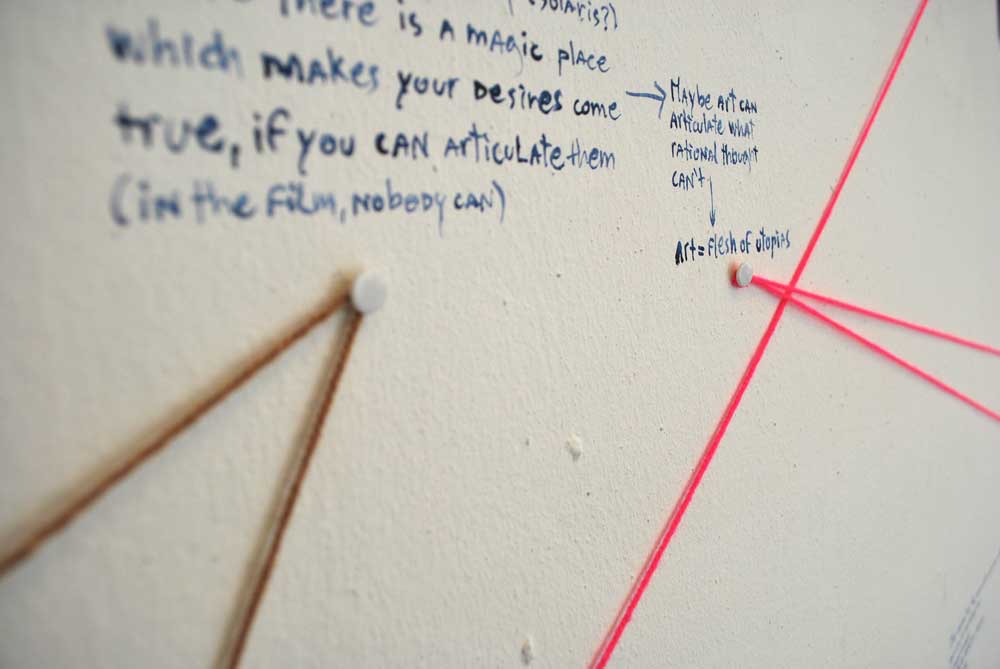 (Solaris?)
There is a magic place
which makes your desires come
true, if you can articulate them
(in the film, nobody can)
→ Maybe art can
articulate what
rational thought
can't
↓
Art = flesh of utopias